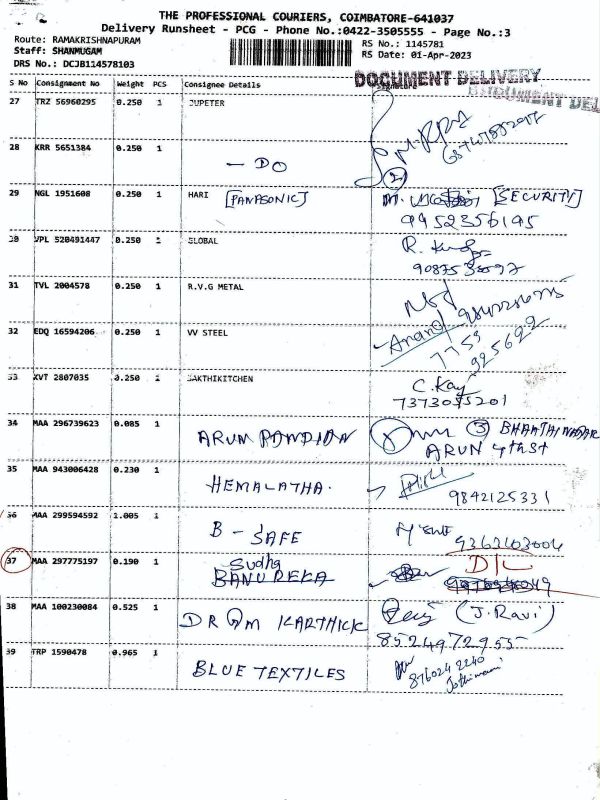 THE PROFESSIONAL COURIERS, COIMBATORE-641037
Delivery Runsheet - PCG - Phone No.:0422-3505555 - Page No.:3
Route: RAMAKRISHNAPURAM
Staff: SHANMUGAM
DRS No.: DCJB114578103
RS No.: 1145781
RS Date: 01-Apr-2023
S No Consignment No Weight PCS Consignee Details
DOCUMENT DELIVERY
27 TRZ 56960295 0.250 1 JUPETER
28 KRR 5651384 0.250 1 - DO
29 NGL 1951608 0.250 1 HARI [PANASONIC] [SECURITY]
9952356195
30 VPL 520491447 0.250 1 GLOBAL
31 TVL 2004578 0.250 1 R.V.G METAL
32 EDQ 16594206 0.250 1 VV STEEL Anand
7759
925622
33 XVT 2807035 0.250 1 SAKTHIKITCHEN
7373035201
34 MAA 296739623 0.085 1 ARUN PANDIAN 3
ARUN 4th st
35 MAA 943006428 0.230 1 HEMALATHA.
9842125331
36 MAA 299594592 1.005 1 B - SAFE
9362103004
37 MAA 297775197 0.190 1 Sudha D/L
BANUREKA
38 MAA 100230084 0.525 1 KARTHICK (J. Ravi)
39 TRP 1590478 0.965 1 BLUE TEXTILES
8760242240
Jothimani